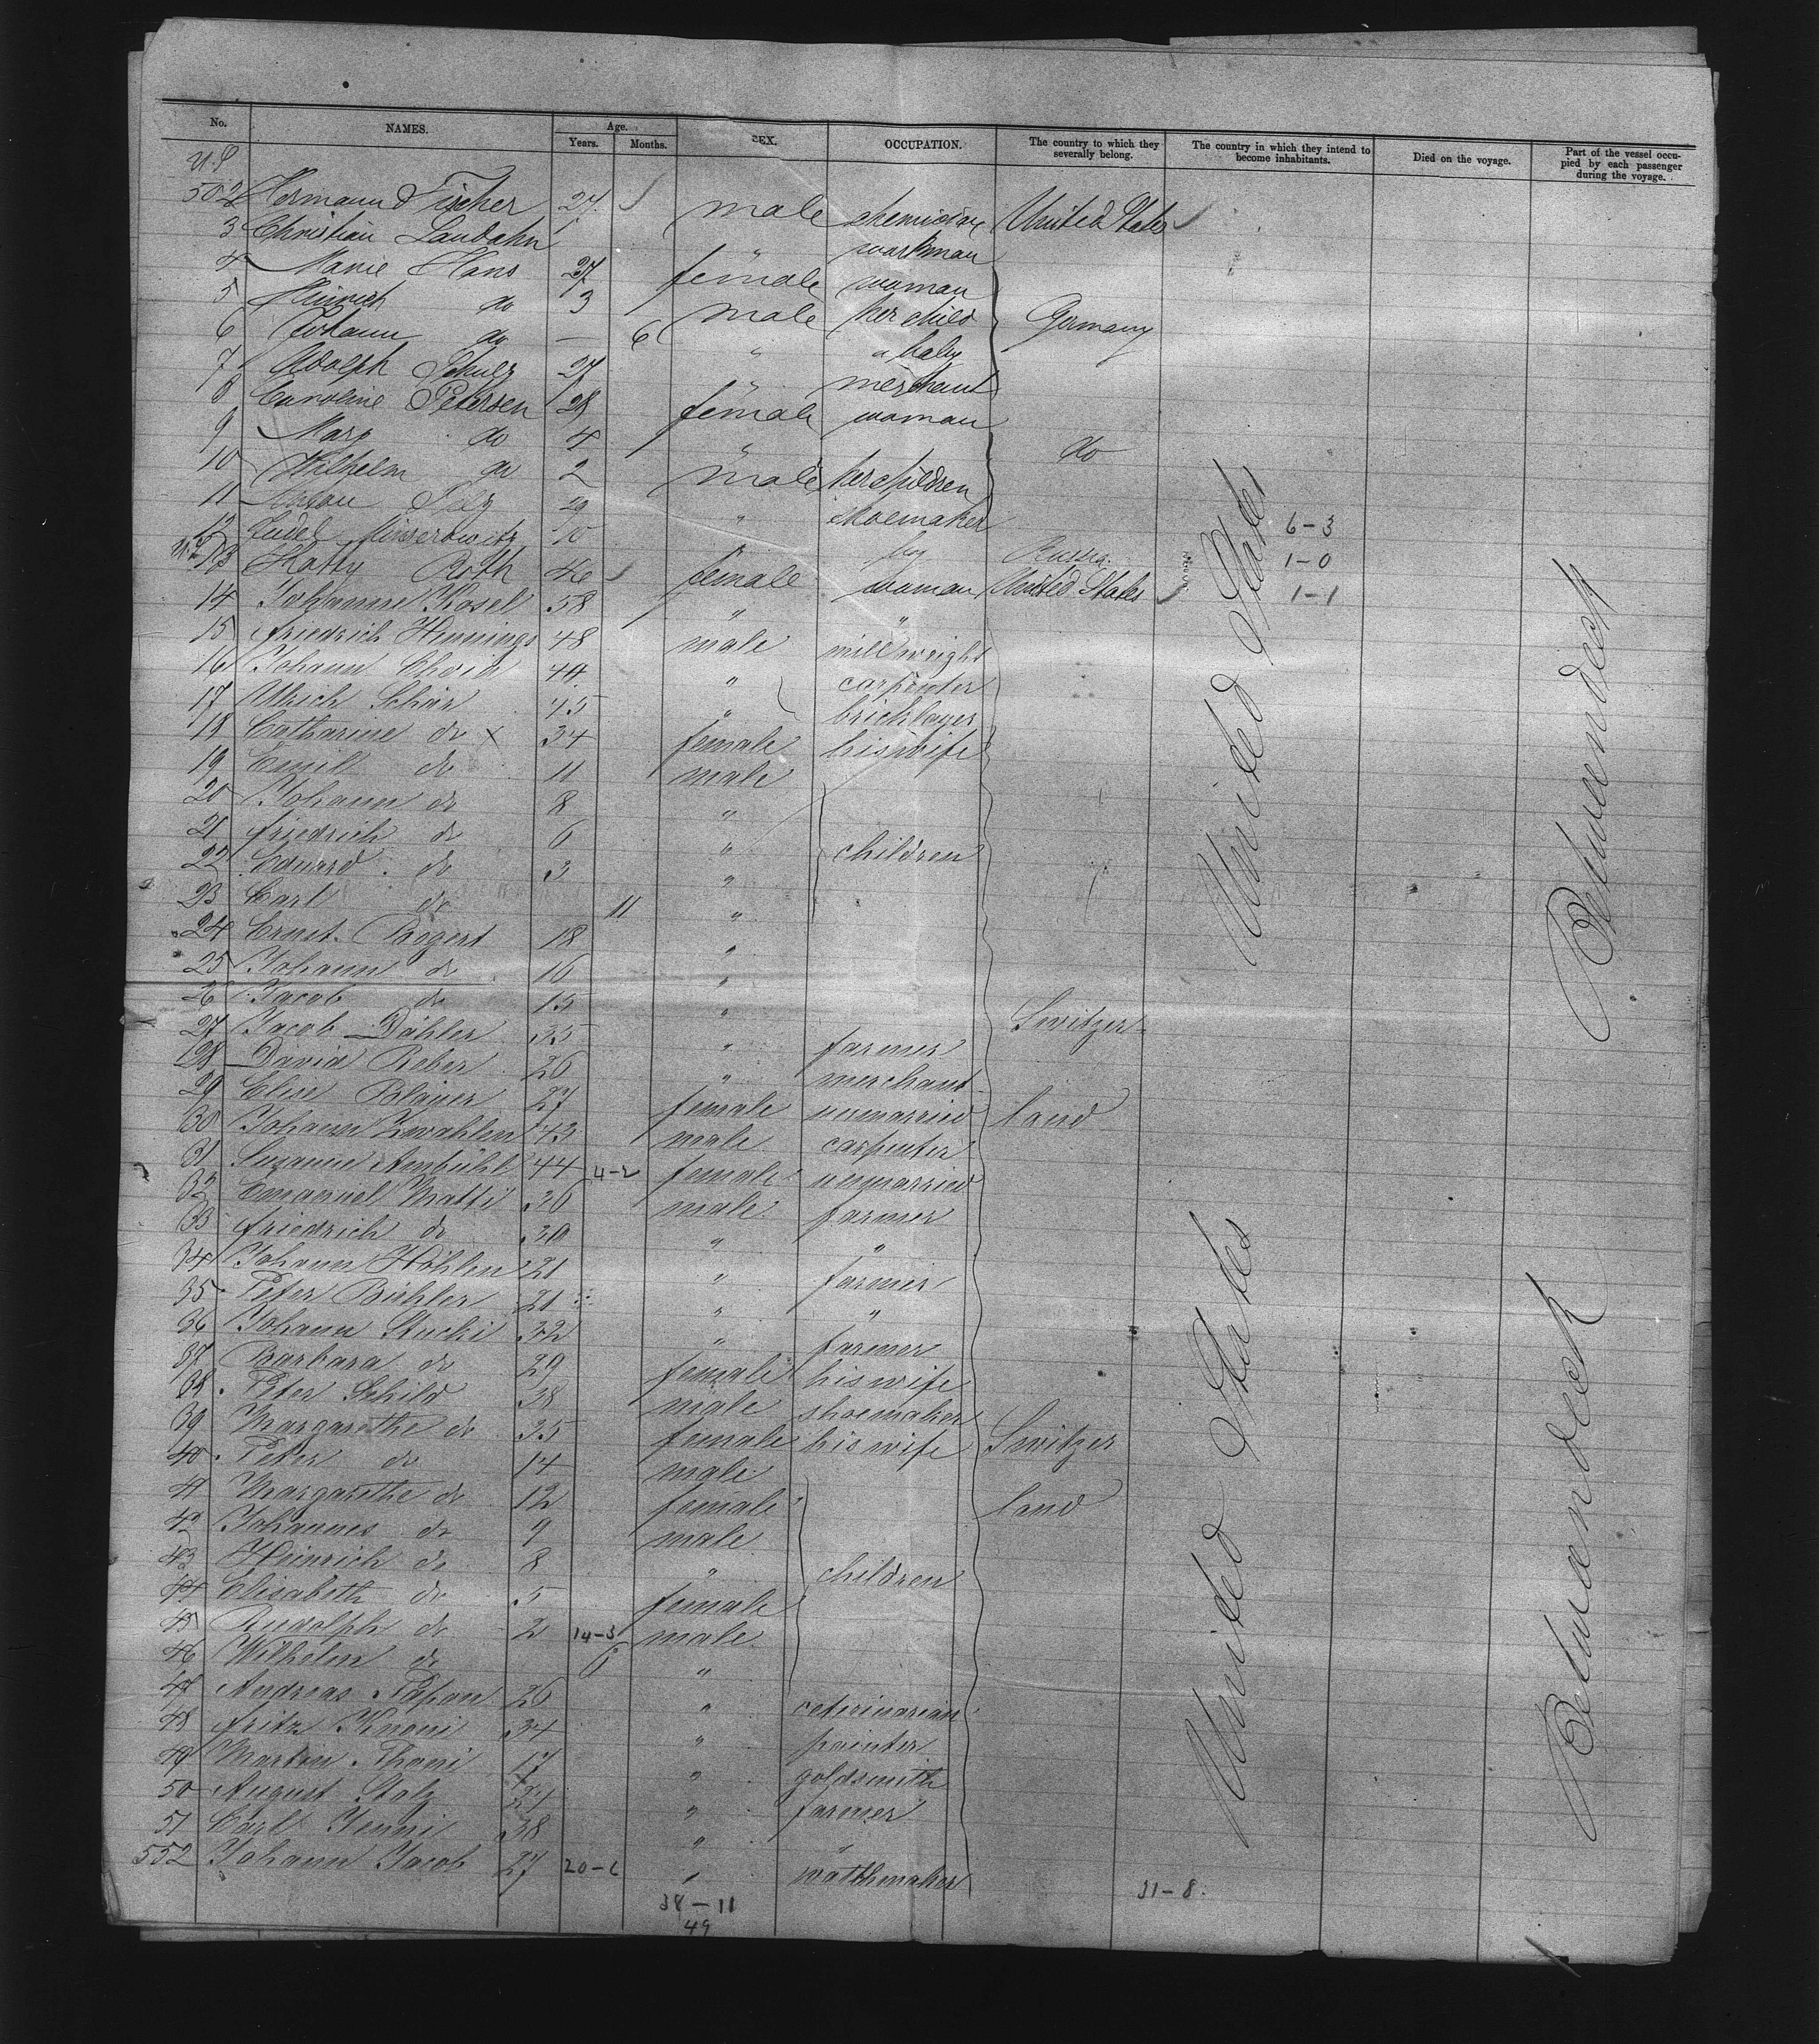 No. NAMES. Age. Years. Months. SEX. OCCUPATION. The country to which they severally belong. The country in which they intend to become inhabitants. Died on the voyage. Part of the vessel occupied by each passenger during the voyage.
502 Hermann Fischer 27 male United States
3 Christian Landahn " workman
4 Marie Hans 27 female woman
5 Heinrich do 3 male her child Germany
6 Johann do — 6 " a baby
7 Adolph Schulz 27 " merchant
8 Caroline Petersen 28 female woman
9 Mary do 4 " do
10 Wilhelm do 2 male her children
11 29 " shoemaker
12 Judel 10 boy Russia 6-3
13 Hatty Roth 46 female woman United States 1-0
14 Johanne Kosel 58 " " 1-1
15 Friedrich Hennings 48 male millwright
16 Johann 44 " carpenter
17 Ulrich Schär 45 " bricklayer
18 Catharine do x 34 female his wife
19 Emil do 11 male
20 Johann do 8 "
21 Friedrich do 6 " children
22 Eduard do 3 "
23 Carl do 11 "
24 Ernst Bögert 18 "
25 Johann do 16 "
26 Jacob do 15 " Switzer
27 Jacob Dähler 35 " farmer
28 David Reber 26 " merchant
29 Elise Blaner 27 female unmarried land
30 Johann Zwahlen 43 male carpenter
31 Susanne Ambühl 44 4-2 female unmarried
32 Emanuel Matti 36 male farmer
33 Friedrich do 30 " "
34 Johann Hählen 21 " farmer
35 Peter Bühler 21 " "
36 Johann Stucki 32 " farmer
37 Barbara do 29 female his wife
38 Peter Schild 38 male shoemaker
39 Margarethe do 35 female his wife Switzer
40 Peter do 14 male
41 Margarethe do 12 female land
42 Johannes do 9 male
43 Heinrich do 8 " children
44 Elisabeth do 5 female
45 Rudolph do 2 14-3 male
46 Wilhelm do 6 "
47 Andreas 26 " veterinarian
48 Fritz 34 " painter
49 Martin Thöni 17 " goldsmith
50 August Stolz 27 " farmer
51 Carl Jenni 38 " "
552 Johann Jacob 27 20-6 " watchmaker
38-11 31-8
49
United States
United States
Betweendeck
Betweendeck